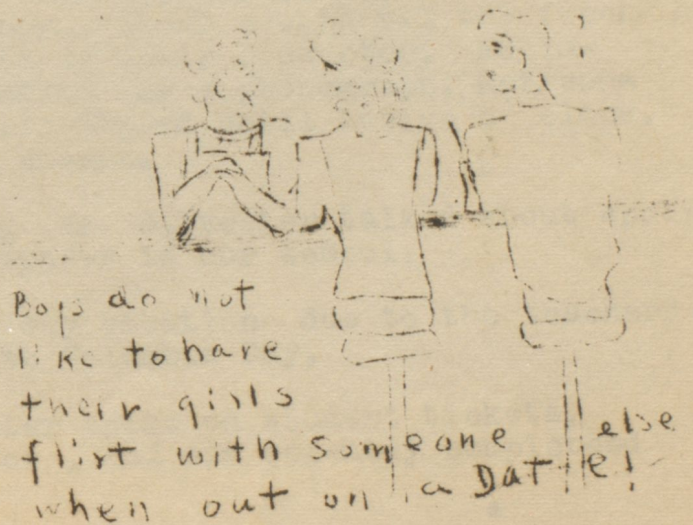 Boys do not
like to have
their girls
flirt with someone else
when out on a Date!